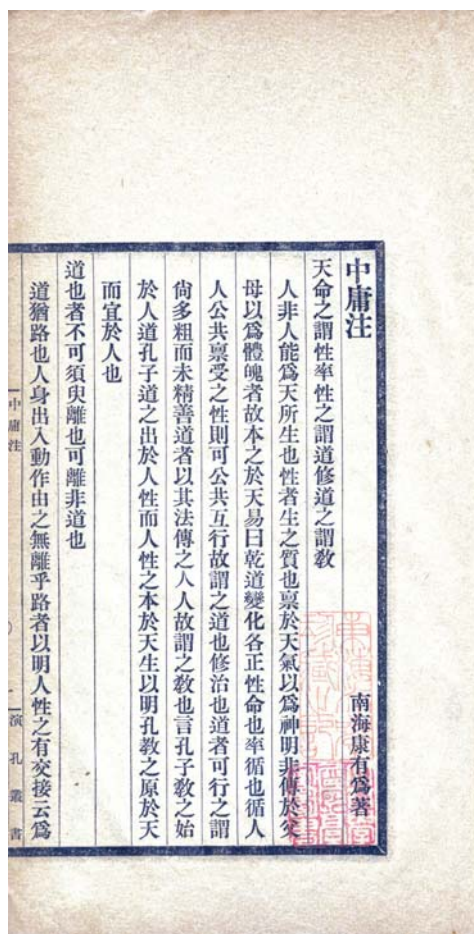 中庸注
南海康有爲著
天命之謂性率性之謂道修道之謂敎
人非人能爲天所生也性者生之質也稟於天氣以爲神明非傳於父
母以爲體魄者故本之於天易曰乾道變化各正性命也率循也循人
人公共稟受之性則可公共互行故謂之道也修治也道者可行之謂
尙多粗而未精善道者以其法傳之人人故謂之敎也言孔子敎之始
於人道孔子道之出於人性而人性之本於天生以明孔敎之原於天
而宜於人也
道也者不可須臾離也可離非道也
道猶路也人身出入動作由之無離乎路者以明人性之有交接云爲
中庸注
演孔叢書